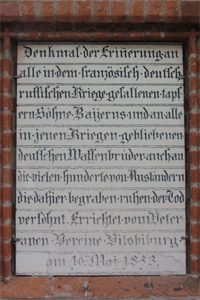 Denkmal der Erinerung an
alle in dem französisch deutsch
russischen Kriege gefallenen tapf
ern Söhne Baijerns und an alle
in jenen Kriegen gebliebenen
deutschen Waffenbrüder auch an
die vielen hunderte von Ausländern
die dahier begraben ruhen der Tod
versöhnt. Errichtet vom Veter
anen Vereine Vilsbiburg
am 10. Mai 1853.